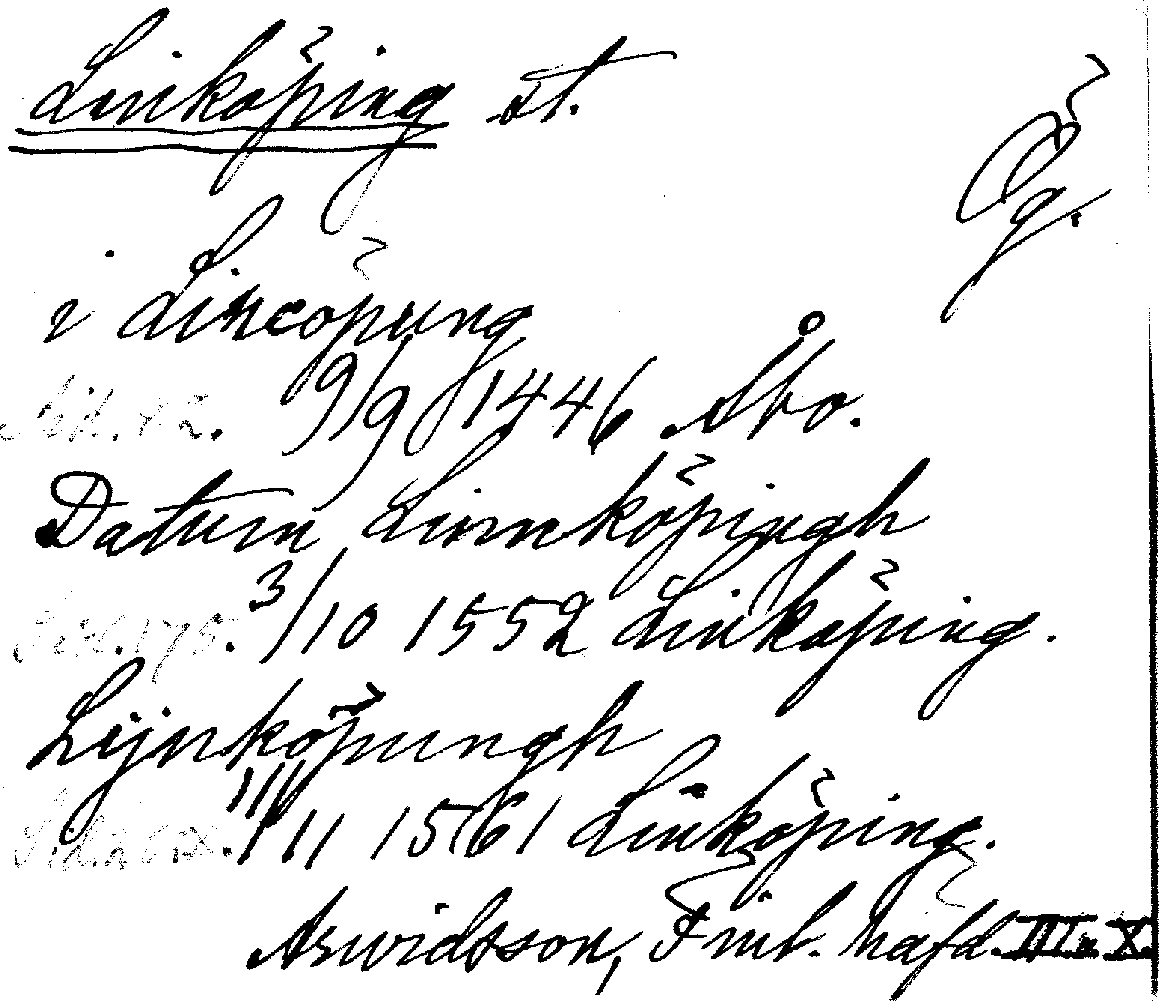 Linköping st.
Ög.
i Lincöpung
Sid. 42. 9/9 1446 Åbo.
Datum Linnköpingh
Sid. 175. 3/10 1552 Linköping.
Lijnköpungh
11/11 1561 Linköping.
Arwidsson, Finl. häfd.